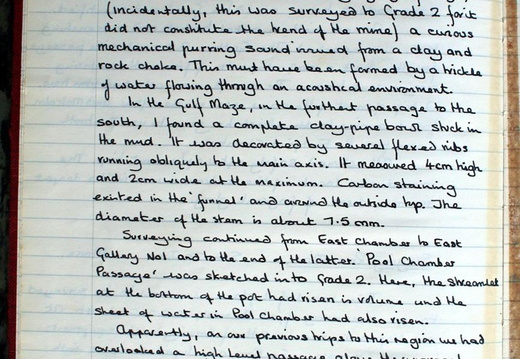 (Incidentally, this was surveyed to Grade 2 for it
did not constitute the trend of the mine) a curious
mechanical purring sound issued from a clay and
rock choke. This must have been formed by a trickle
of water flowing through an acoustical environment.
In the 'Gulf Maze, in the furthest passage to the
south, I found a complete clay-pipe bowl stuck in
the mud. It was decorated by several flexed ribs
running obliquely to the main axis. It measured 4cm high
and 2cm wide at the maximum. Carbon staining
existed in the 'funnel' and around the outside top. The
diameter of the stem is about 7.5 mm.
Surveying continued from East Chamber to East
Gallery No1 and to the end of the latter. 'Pool Chamber
Passage' was sketched in to Grade 2. Here, the streamlet
at the bottom of the pot had risen in volume and the
sheet of water in Pool Chamber had also risen.
Apparently, on our previous trips to this region we had
overlooked a high level passage above the